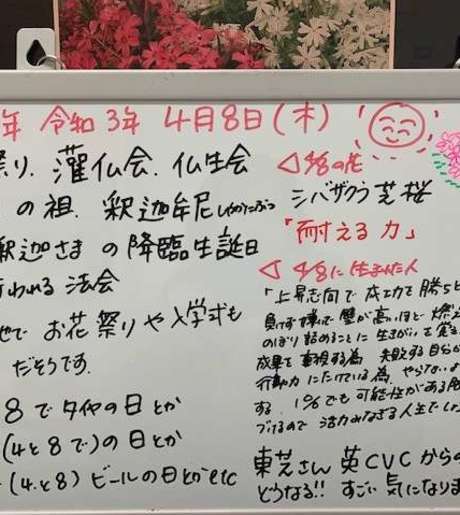 年 令和3年 4月8日(木)
祭り、灌仏会、仏生会
の祖、釈迦牟尼しゃかにぶつ
釈迦さま の降臨生誕日
行われる 法会
せて お花祭りや入学式も
だそうです。
8 で タイヤの日とか
(4と8で)の日とか
(4と8) ビールの日とかetc
◁4/8の花
シバザクラ 芝桜
「耐える力」
◁4/8に生まれた人
「上昇志向で 成功を勝ち
負けず嫌いで 壁が高いほど 燃え
のぼり詰めることに 生きがいを
成果を重視する為 失敗する自分
行動力にたけている為、やらない
する。1%でも可能性がある
活力みなぎる人生でし
東芝さん 英CVCからの
どうなる!! すごい気になりま